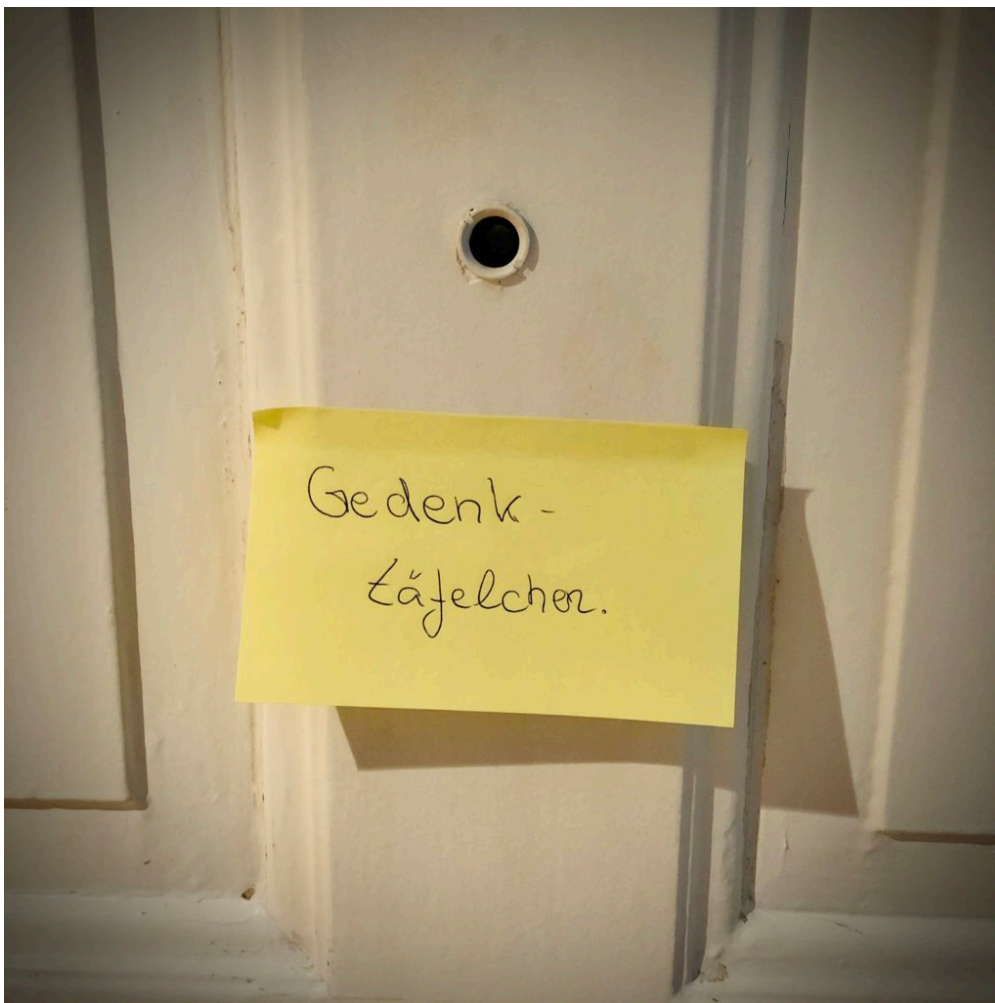 Gedenk-
täfelchen.